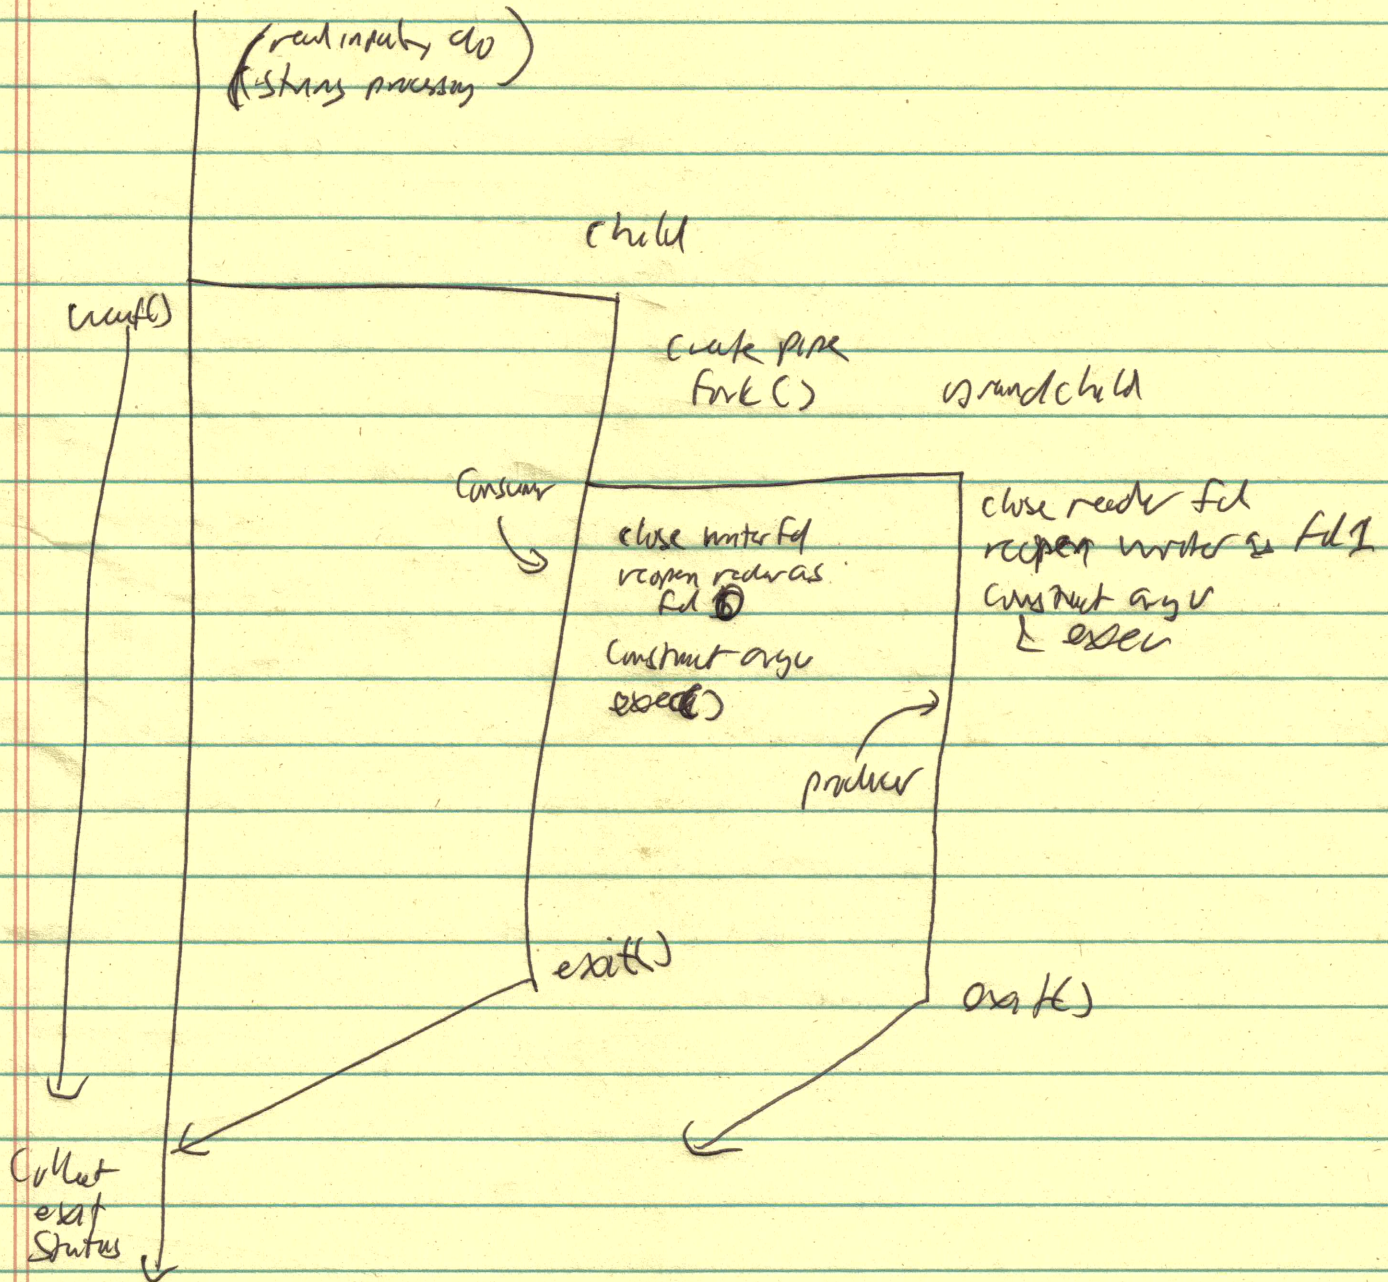 (read input, do
string processing)
child
wait()
create pipe
fork()
grandchild
consumer
close writer fd
reopen reader as
fd 0
construct argv
exec()
close reader fd
reopen writer as fd 1
construct argv
& exec
producer
exit()
exit()
collect
exit
status